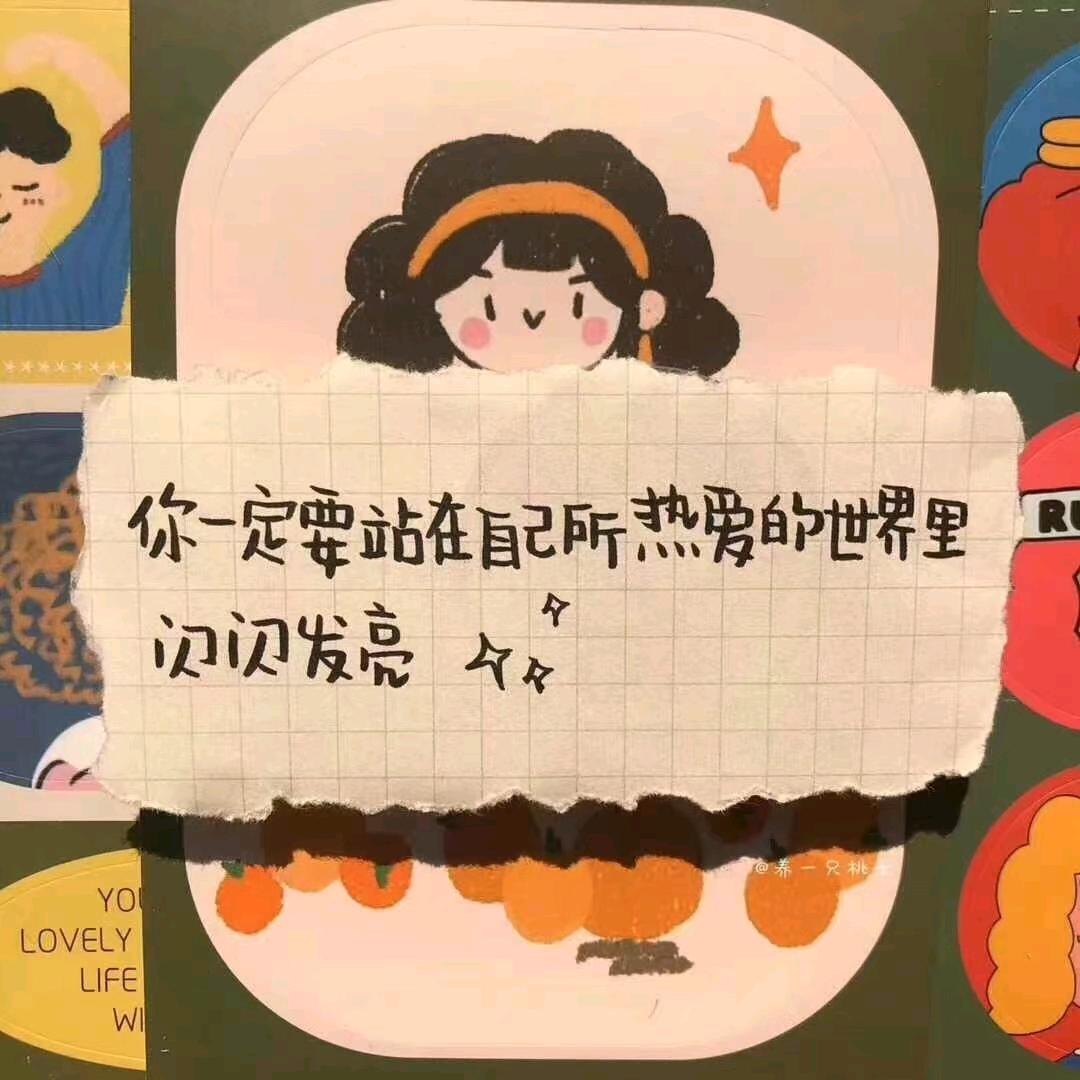 你一定要站在自己所热爱的世界里
闪闪发亮
@养一只桃
LOVELY
LIFE